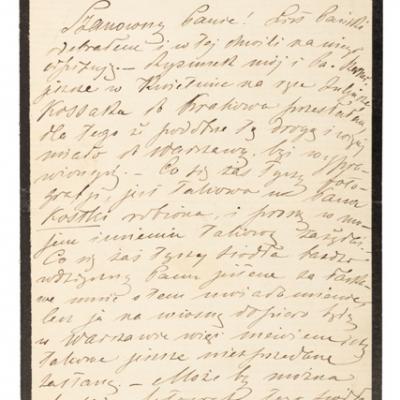 Szanowny Panie! List Pański
odebrałem i w tej chwili na niego
odpisuję. — Rysunek mój i
jeszcze w Kwietniu na ręce Juliusza
Kossaka do Krakowa przesłałem
dla tego że podobno tą drogą i
miało do Warszawy być wypra-
wionych. — Co się zaś tyczy foto-
grafji, jest takowa u Pana
Kostki robiona, i proszę w mo-
jem imieniu takowej zażądać.
Co się zaś tyczy siodła bardzo
wdzięczny Panu jestem za łaska-
we mnie o tem uwiadomienie
lecz ja na wiosnę dopiero będę
w Warszawie więc nie wiem czy
takowe jeszcze niesprzedane
zastanę. — Może by można